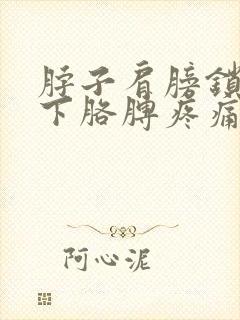 脖子肩膀鎖
下胳膊疼痛
阿心泥